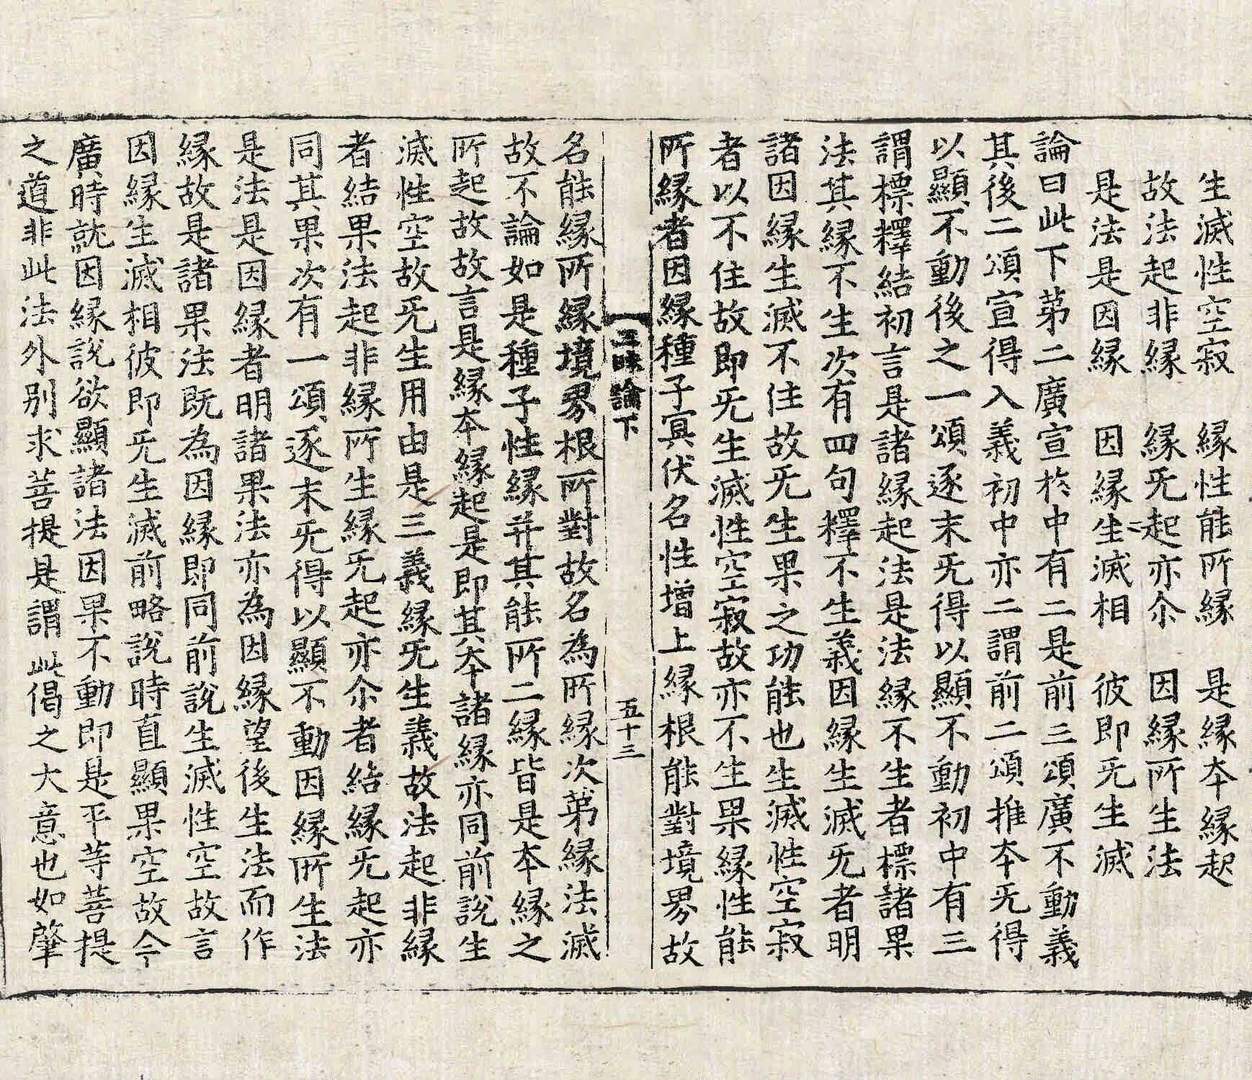 生滅性空寂　緣性能所緣　是緣夲緣起
故法起非緣　緣旡起亦尒　因緣所生法
是法是因緣　因緣生滅相　彼即旡生滅
論曰此下第二廣宣於中有二是前三頌廣不動義
其後二頌宣得入義初中亦二謂前二頌推夲旡得
以顯不動後之一頌逐末旡得以顯不動初中有三
謂標釋結初言是諸緣起法是法緣不生者標諸果
法其緣不生次有四句釋不生義因緣生滅旡者明
諸因緣生滅不住故旡生果之功能也生滅性空寂
者以不住故即旡生滅性空寂故亦不生果緣性能
所緣者因緣種子冥伏名性增上緣根能對境界故
三昧論下　五十三
名能緣所緣境界根所對故名為所緣次第緣法滅
故不論如是種子性緣并其能所二緣皆是夲緣之
所起故故言是緣夲緣起是即其夲諸緣亦同前說生
滅性空故旡生用由是三義緣旡生義故法起非緣
者結果法起非緣所生緣旡起亦尒者結緣旡起亦
同其果次有一頌逐末旡得以顯不動因緣所生法
是法是因緣者明諸果法亦為因緣望後生法而作
緣故是諸果法既為因緣即同前說生滅性空故言
因緣生滅相彼即旡生滅前略說時直顯果空故今
廣時就因緣說欲顯諸法因果不動即是平等菩提
之道非此法外別求菩提是謂此偈之大意也如肇